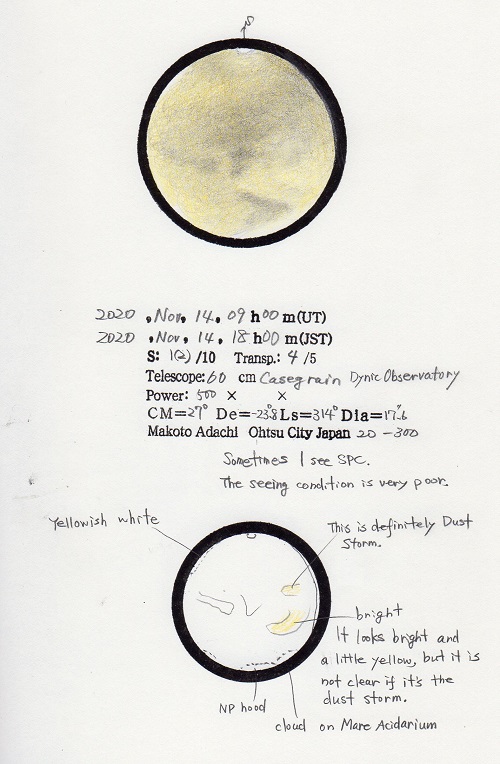 S
2020 , Nov. 14, 09 h00 m(UT)
2020 , Nov, 14, 18 h00 m(JST)
S: 1(2) /10 Transp.: 4 /5
Telescope: 60 cm Casegrain Dynic Observatory
Power: 500 × ×
CM=27° De=-23.°8 Ls=314° Dia=17."6
Makoto Adachi Ohtsu City Japan 20-300
Sometimes I see SPC.
The seeing condition is very poor.
Yellowish white
This is definitely Dust
Storm.
bright
It looks bright and
a little yellow, but it is
not clear if it's the
dust storm.
NP hood
cloud on Mare Acidarium